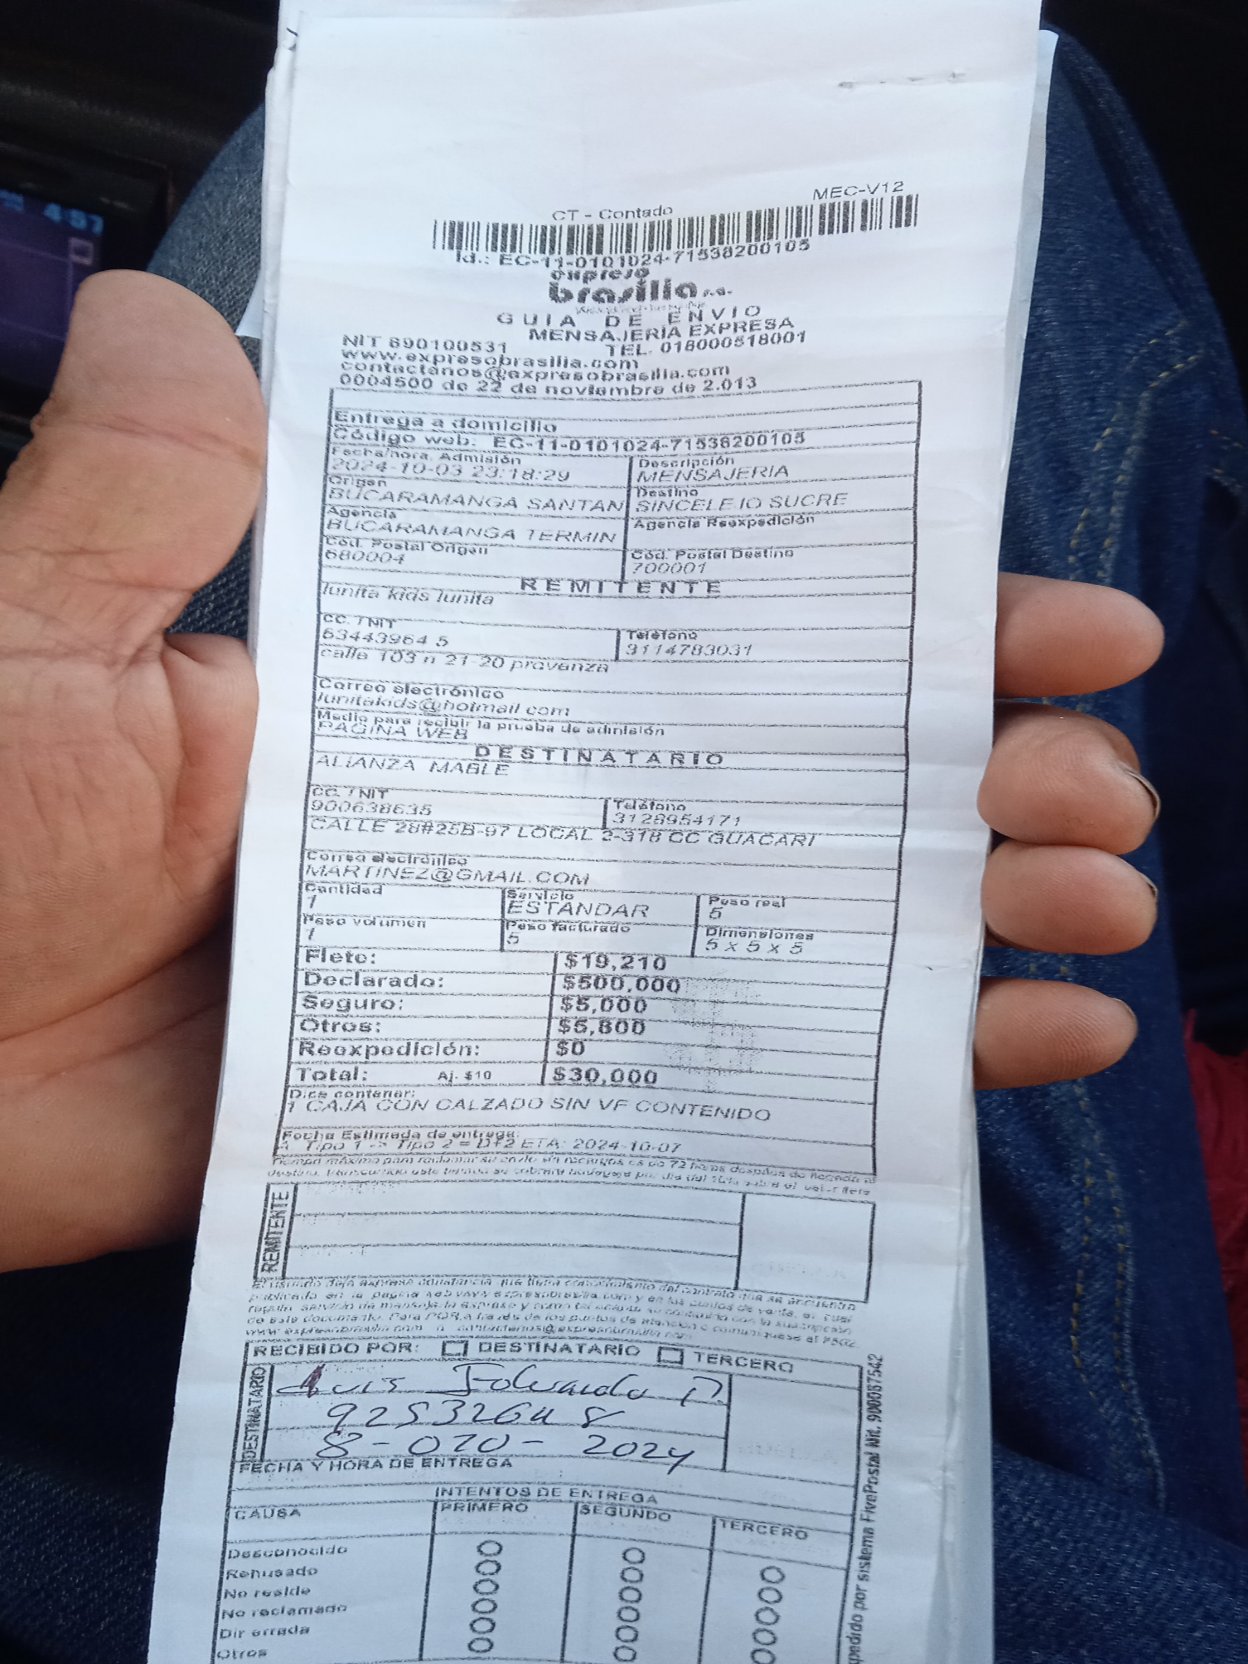 MEC-V12
CT - Contado
Id.: EC-11-0101024-71538200105
expreso
brasilia s.a.
GUIA DE ENVIO
MENSAJERIA EXPRESA
NIT 890100531 TEL. 018000518001
www.expresobrasilia.com
contactanos@expresobrasilia.com
0004500 de 22 de noviembre de 2.013
Entrega a domicilio
Código web: EC-11-0101024-71538200105
Fecha/hora Admisión Descripción
2024-10-03 23:18:29 MENSAJERIA
Origen Destino
BUCARAMANGA SANTAN SINCELEJO SUCRE
Agencia Agencia Reexpedición
BUCARAMANGA TERMIN
Cód. Postal Origen Cód. Postal Destino
680004 700001
REMITENTE
lunita kids lunita
CC. / NIT Teléfono
63443964 5 3114783031
calle 103 n 21-20 provenza
Correo electrónico
lunitakids@hotmail.com
Medio para recibir la prueba de admisión
PAGINA WEB
DESTINATARIO
ALIANZA MABLE
CC. / NIT Teléfono
900638635 3128954171
CALLE 28#25B-97 LOCAL 2-318 CC GUACARI
Correo electrónico
MARTINEZ@GMAIL.COM
Cantidad Servicio Peso real
1 ESTANDAR 5
Peso volumen Peso facturado Dimensiones
1 5 5 x 5 x 5
Flete: $19,210
Declarado: $500,000
Seguro: $5,000
Otros: $5,800
Reexpedición: $0
Total: Aj. $10 $30,000
Dice contener:
1 CAJA CON CALZADO SIN VF CONTENIDO
Fecha Estimada de entrega:
A Tipo 1 -> Tipo 2 = D+2 ETA: 2024-10-07
REMITENTE
RECIBIDO POR: DESTINATARIO TERCERO
DESTINATARIO
Luis Eduardo P.
92532648
8-020-2024
FECHA Y HORA DE ENTREGA
INTENTOS DE ENTREGA
CAUSA PRIMERO SEGUNDO TERCERO
Desconocido
Rehusado
No reside
No reclamado
Dir errada
Otros
pedido por sistema FivePostal Nit. 900087542